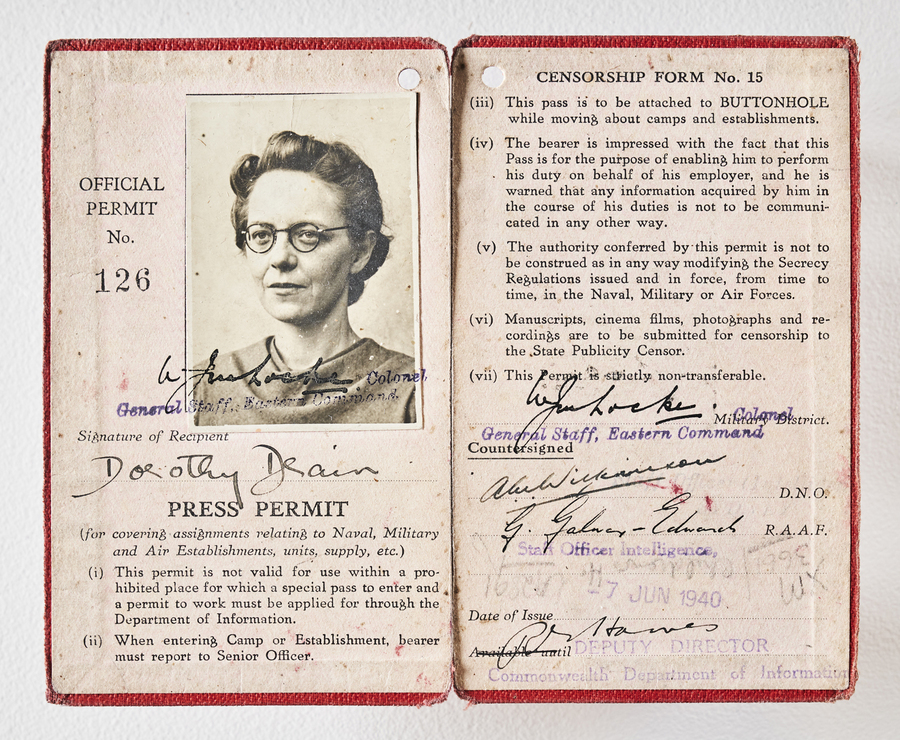 OFFICIAL
PERMIT
No.
126
Colonel
General Staff, Eastern Command.
Signature of Recipient
Dorothy Drain
PRESS PERMIT
(for covering assignments relating to Naval, Military
and Air Establishments, units, supply, etc.)
(i) This permit is not valid for use within a pro-
hibited place for which a special pass to enter and
a permit to work must be applied for through the
Department of Information.
(ii) When entering Camp or Establishment, bearer
must report to Senior Officer.
CENSORSHIP FORM No. 15
(iii) This pass is to be attached to BUTTONHOLE
while moving about camps and establishments.
(iv) The bearer is impressed with the fact that this
Pass is for the purpose of enabling him to perform
his duty on behalf of his employer, and he is
warned that any information acquired by him in
the course of his duties is not to be communi-
cated in any other way.
(v) The authority conferred by this permit is not to
be construed as in any way modifying the Secrecy
Regulations issued and in force, from time to
time, in the Naval, Military or Air Forces.
(vi) Manuscripts, cinema films, photographs and re-
cordings are to be submitted for censorship to
the State Publicity Censor.
(vii) This Permit is strictly non-transferable.
Colonel
Military District.
General Staff, Eastern Command
Countersigned
D.N.O.
R.A.A.F.
Staff Officer Intelligence,
-7 JUN 1940
Date of Issue
Available until DEPUTY DIRECTOR
Commonwealth Department of Information